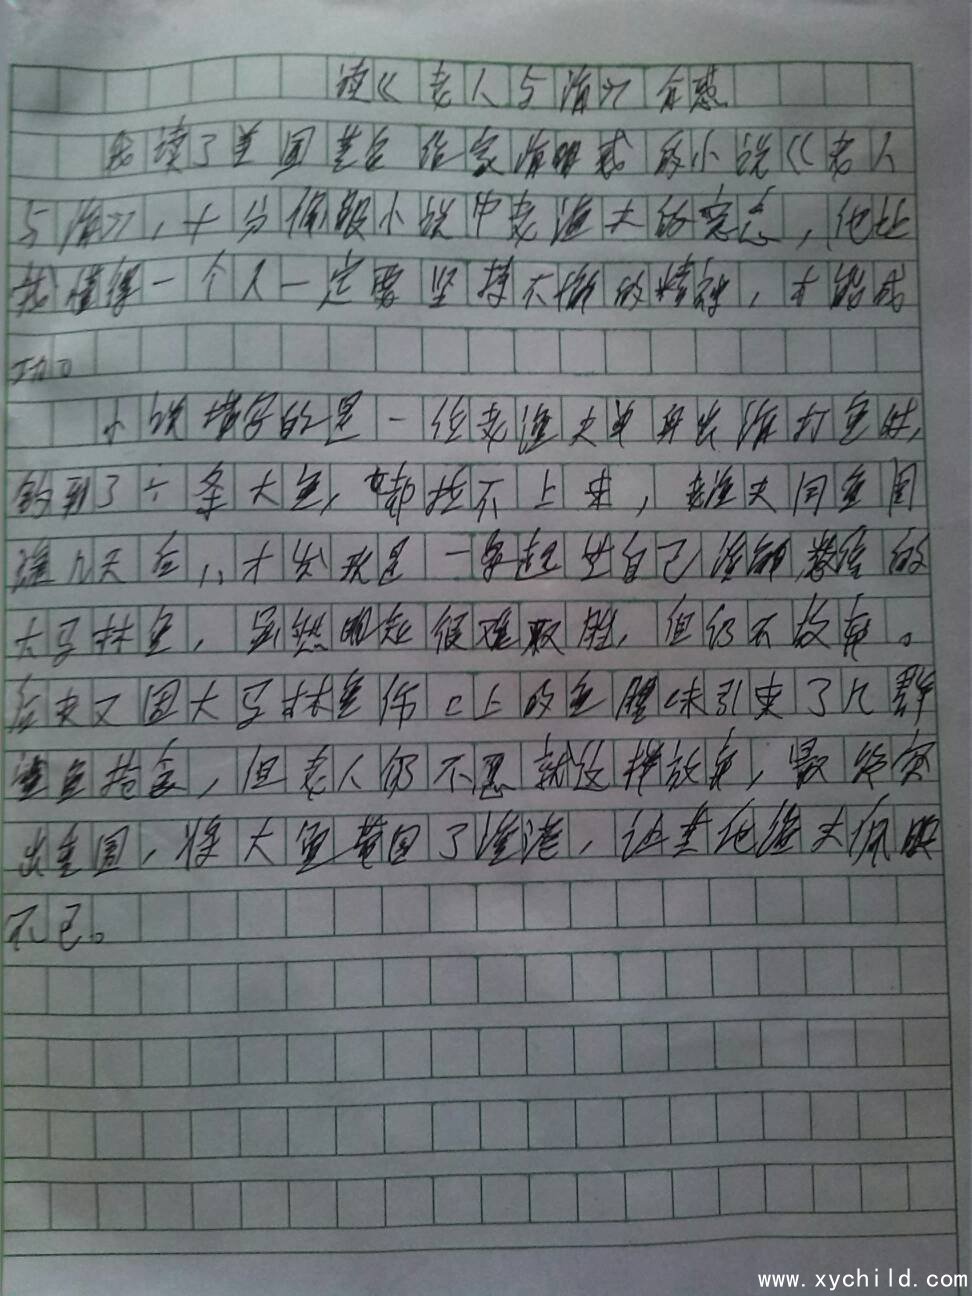 读《老人与海》有感
我读了美国著名作家海明威的小说《老人
与海》,十分佩服小说中老渔夫的意志,他让
我懂得一个人一定要坚持不懈的精神,才能成
功。
小说描写的是一位老渔夫出海打鱼时,
钓到了一条大鱼,却拉不上来,老渔夫同鱼周
旋几天后,才发现是一条超过自己渔船数倍的
大马林鱼,虽然明知很难取胜,但仍不放弃。
后来又因大马林鱼伤口上的鱼腥味引来了几群
鲨鱼抢食,但老人仍不愿就这样放弃,最终突
出重围,将大鱼带回了渔港,让其他渔夫佩服
不已。
www.xychild.com